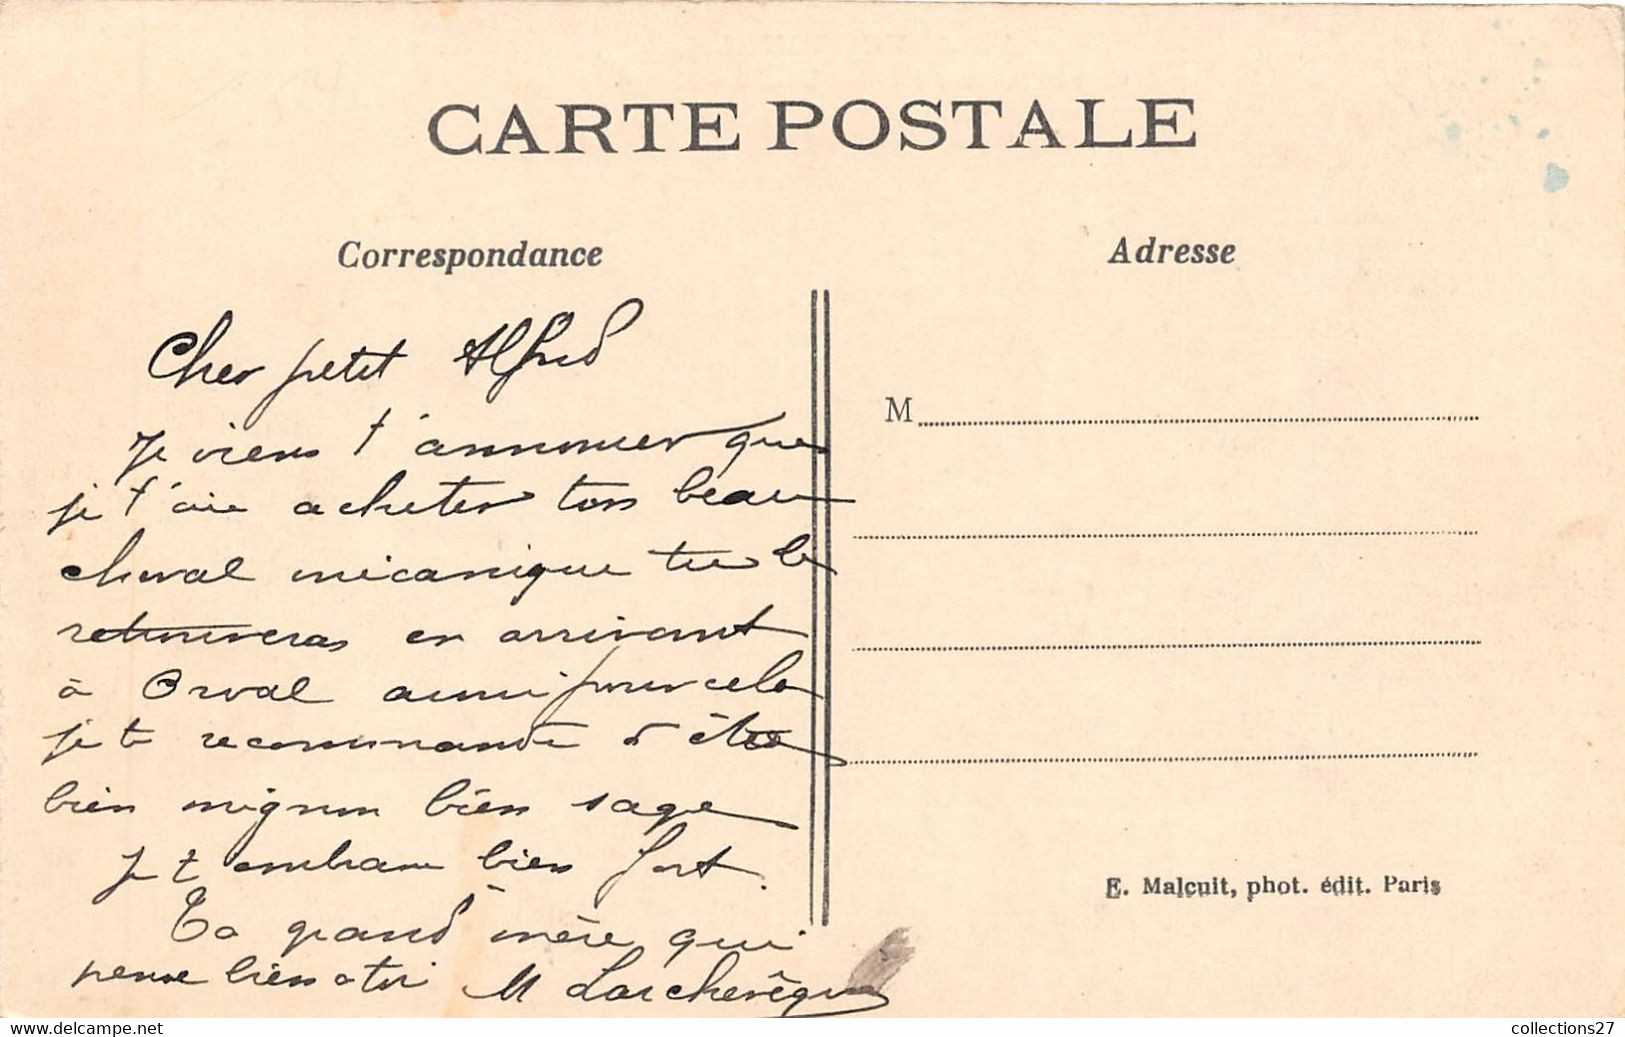 CARTE POSTALE
Correspondance
Cher petit Alfred
Je viens t'annoncer que
je t'ai acheter ton beau
cheval mécanique tu le
retrouveras en arrivant
à Orval aussi pour cela
je te recommande d'être
bien mignon bien sage
Je t'embrasse bien fort.
Ta grand mère qui
pense bien a toi M Larchevêque
Adresse
M
E. Malcuit, phot. édit. Paris
www.delcampe.net
collections27